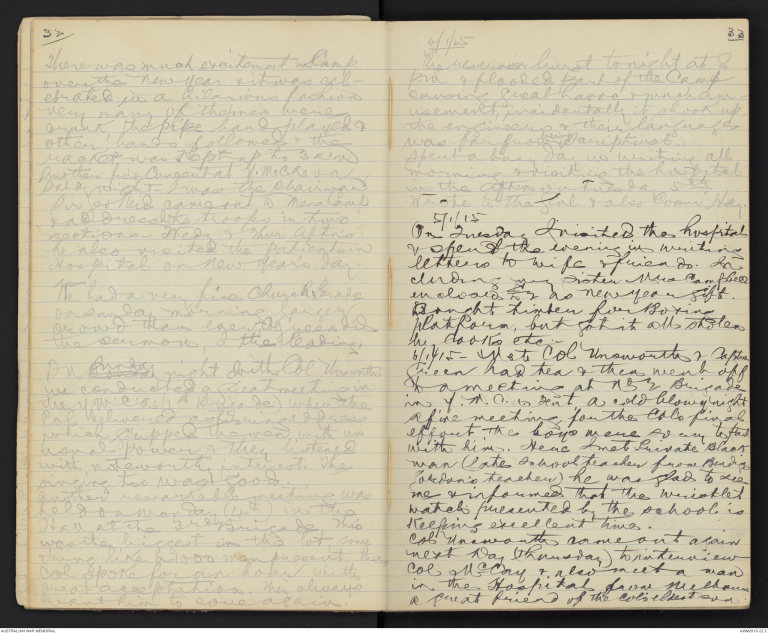 32
There was much excitement in Camp
over the New Year & it was cel-
ebrated in a hilarious fashion
very many of the men were
drunk, the pipe band played &
other bands followed & the
racket was kept up to 3 a.m.
Another fine Concert at Y.M.C.A. on
Sat. night - I was the Chairman
came out to Mena Camp
& addressed the troops in two
sections Wed. & Thur aftns.
he also visited the patients in
Hospital on New Year's day
We had a very fine Church Parade
on Sunday morning larger
crowd than ever
the sermon, I the leading.
On Sunday night with Col Unsworth
we conducted a great meeting in
the Y.M.C.A. (1st Brigade) when the
Col delivered a address
which gripped the men with un
usual power & they listened
with noteworthy interest the
singing too was good.
Another remarkable meeting was
held on Monday (4th) in the
Hall at the 3rd Brigade. This
was the biggest in the lot some
thing like 2000 men present the
Col spoke for an hour with
great acceptation. They always
want him to come again.
33
4/1/15
The reservoir burst tonight at 8
P.M. & flooded part of the Camp
causing great havoc &
usement, incidentally it shook up
the engineers & their language
was far from being scriptural.
Spent a busy day in writing all
morning & visiting the hospital
in the aftern on Tuesday 5th
Wrote to the Girl & also Comr. Hay
5/1/15
On Tuesday I visited the hospital
& spent the evening in writing
letters to wife & friends. In
cluding my sister Mrs Campbell
enclosed as new year gift.
Bought timber for Boxing
platform, but got it all stolen
by cooks etc.-
6/1/15 - Met Col Unsworth &
Green had tea & then went off
to a meeting at No 2 Brigade
in Y.M.C.A. tent a cold blowy night
a fine meeting for the Cols final
effort the boys were sorry to part
with him. Here I met Private Black
man (late school teacher from Bendigo
Gordon's teacher) he was glad to see
me & informed that the wristlet
watch presented by the school is
keeping excellent time.
Col Unsworth came out again
next day (Thursday) to interview
Col McCay & also meet a man
in the Hospital from Melbourne
a great friend of the Cols eldest son.
AUSTRALIAN WAR MEMORIAL
AWM2019.22.2